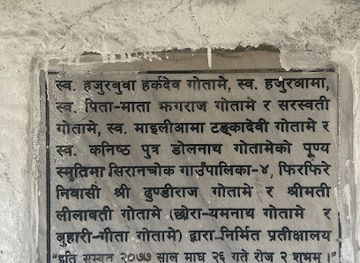 स्व. हजुरबुबा हर्कदेव गोतामे, स्व. हजुरआमा,
स्व. पिता-माता झगराज गोतामे र सरस्वती
गोतामे, स्व. माइलीआमा टङ्कादेवी गोतामे र
स्व. कनिष्ठ पुत्र डोलनाथ गोतामेको पूण्य
स्मृतिमा सिरानचोक गाउँपालिका-४, फिरफिरे
निवासी श्री ढुण्डीराज गोतामे र श्रीमती
लीलाबती गोतामे (छोरा-यमनाथ गोतामे र
बुहारी-गीता गोतामे) द्वारा निर्मित प्रतीक्षालय
"इति सम्वत २०७७ साल माघ २६ गते रोज २ शुभम् ।"